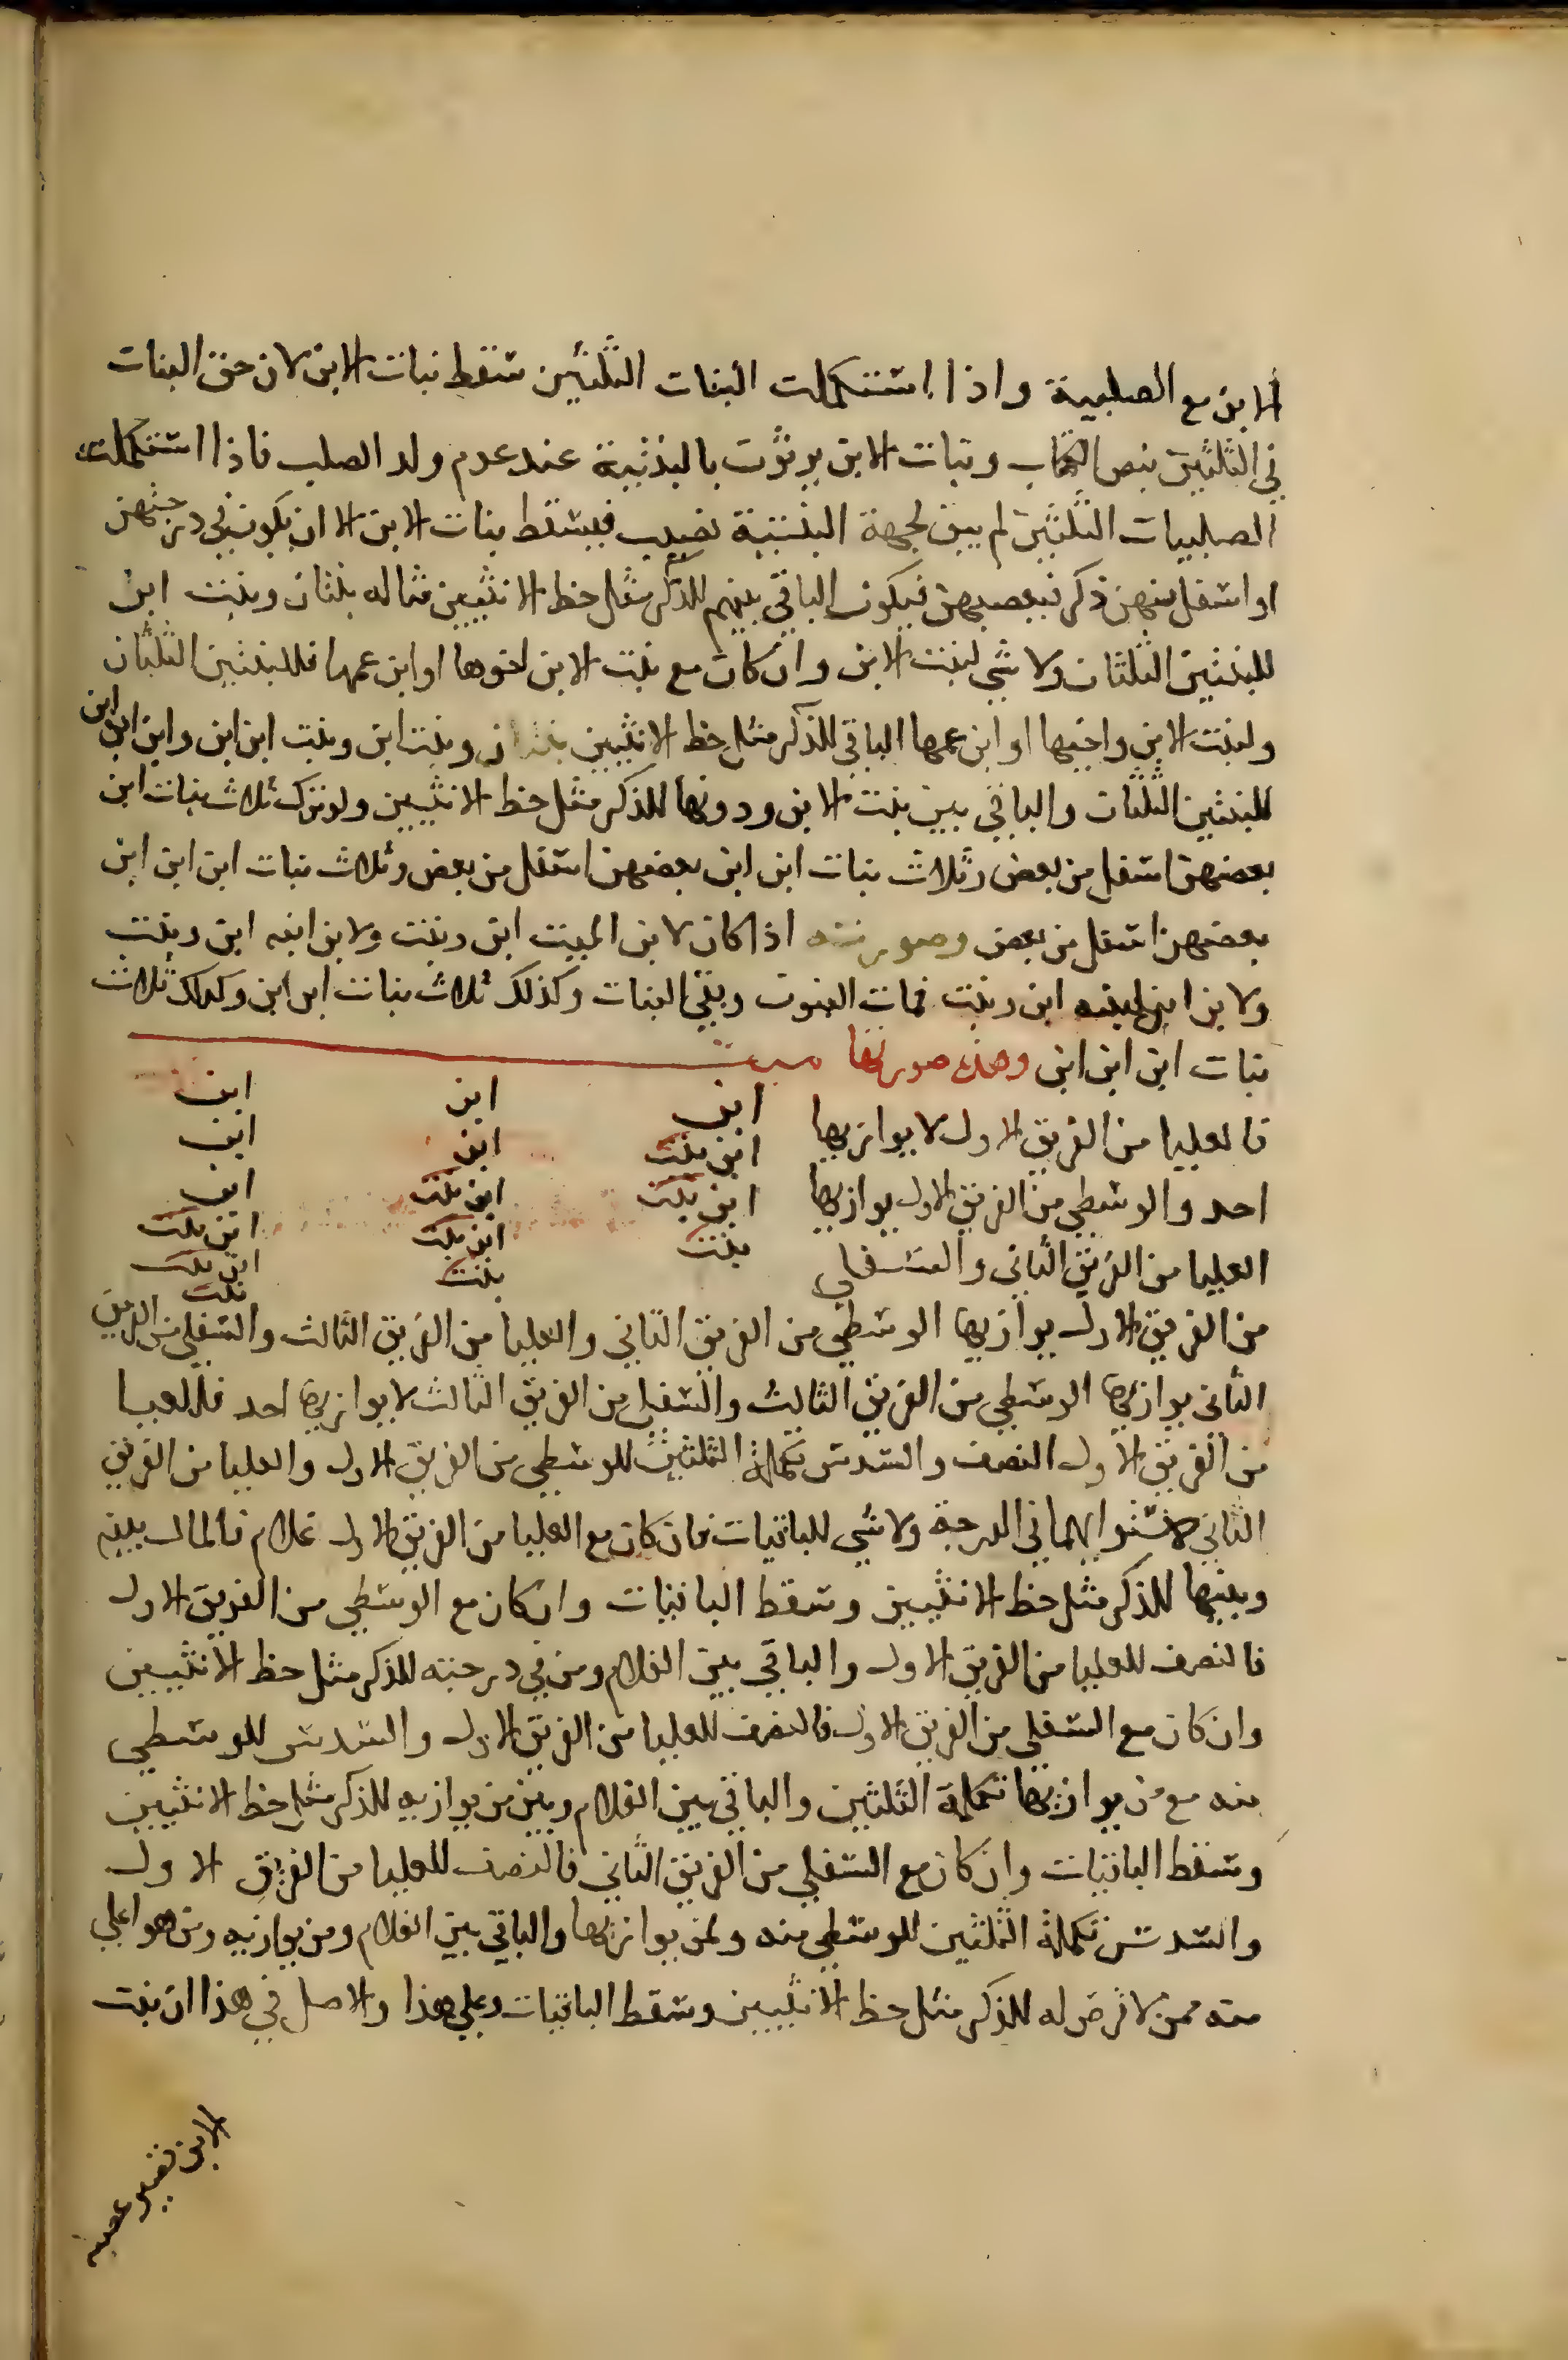 الابن مع الصلبية واذا استكملت البنات الثلثين سقط بنات الابن لان حق البنات
في الثلثين بنص الكتاب وبنات الابن يرثون بالبنتية عند عدم ولد الصلب فاذا استكملت
الصلبيات الثلثين لم يبق لجهة البنتية نصيب فيسقط بنات الابن الا ان يكون في درجتهن
او اسفل منهن ذكر فيعصبهن فيكون الباقي بينهم للذكر مثل حظ الانثيين مثاله بنتان وبنت ابن
للبنتين الثلثان ولا شي لبنت الابن وان كان مع بنت الابن اخوها او ابن عمها فللبنتين الثلثان
ولبنت الابن واخيها او ابن عمها الباقي للذكر مثل حظ الانثيين بنتان وبنت ابن وبنت ابن ابن وابن ابن ابن
للبنتين الثلثان والباقي بين بنت الابن ودونها للذكر مثل حظ الانثيين ولو ترك ثلاث بنات ابن
بعضهن اسفل من بعض وثلاث بنات ابن ابن بعضهن اسفل من بعض وثلاث بنات ابن ابن ابن
بعضهن اسفل من بعض وصورته اذا كان لابن الميت ابن وبنت ولابن ابنه ابن وبنت
ولابن ابن ابنه ابن وبنت فمات البنون وبقي البنات وكذلك ثلاث بنات ابن ابن وكذلك ثلاث
بنات ابن ابن ابن وهذه صورتها ميت
ابن ابن ابن
فالعليا من الفريق الاول لا يوازيها
ابن بنت ابن ابن
احد والوسطي من الفريق الاول يوازيها
ابن بنت ابن بنت ابن
بنت ابن بنت ابن بنت
العليا من الفريق الثاني والسفلي
بنت ابن بنت
بنت
من الفريق الاول يوازيها الوسطي من الفريق الثاني والعليا من الفريق الثالث والسفلي من الفريق
الثاني يوازيها الوسطي من الفريق الثالث والسفلي من الفريق الثالث لا يوازيها احد فللعليا
من الفريق الاول النصف والسدس تكملة الثلثين للوسطي من الفريق الاول والعليا من الفريق
الثاني لاستوائهما في الدرجة ولا شي للباقيات فان كان مع العليا من الفريق الاول غلام فالمال بينه
وبينها للذكر مثل حظ الانثيين وسقط الباقيات وان كان مع الوسطي من الفريق الاول
فالنصف للعليا من الفريق الاول والباقي بين الغلام ومن في درجته للذكر مثل حظ الانثيين
وان كان مع السفلي من الفريق الاول فالنصف للعليا من الفريق الاول والسدس للوسطي
منه مع من يوازيها تكملة الثلثين والباقي بين الغلام وبين من يوازيه للذكر مثل حظ الانثيين
وسقط الباقيات وان كان مع السفلي من الفريق الثاني فالنصف للعليا من الفريق الاول
والسدس تكملة الثلثين للوسطي منه ولمن يوازيها والباقي بين الغلام ومن يوازيه ومن هو اعلي
منه ممن لا فرض له للذكر مثل حظ الانثيين وسقط الباقيات وعلي هذا والاصل في هذا ان بنت
الابن تصير عصبة